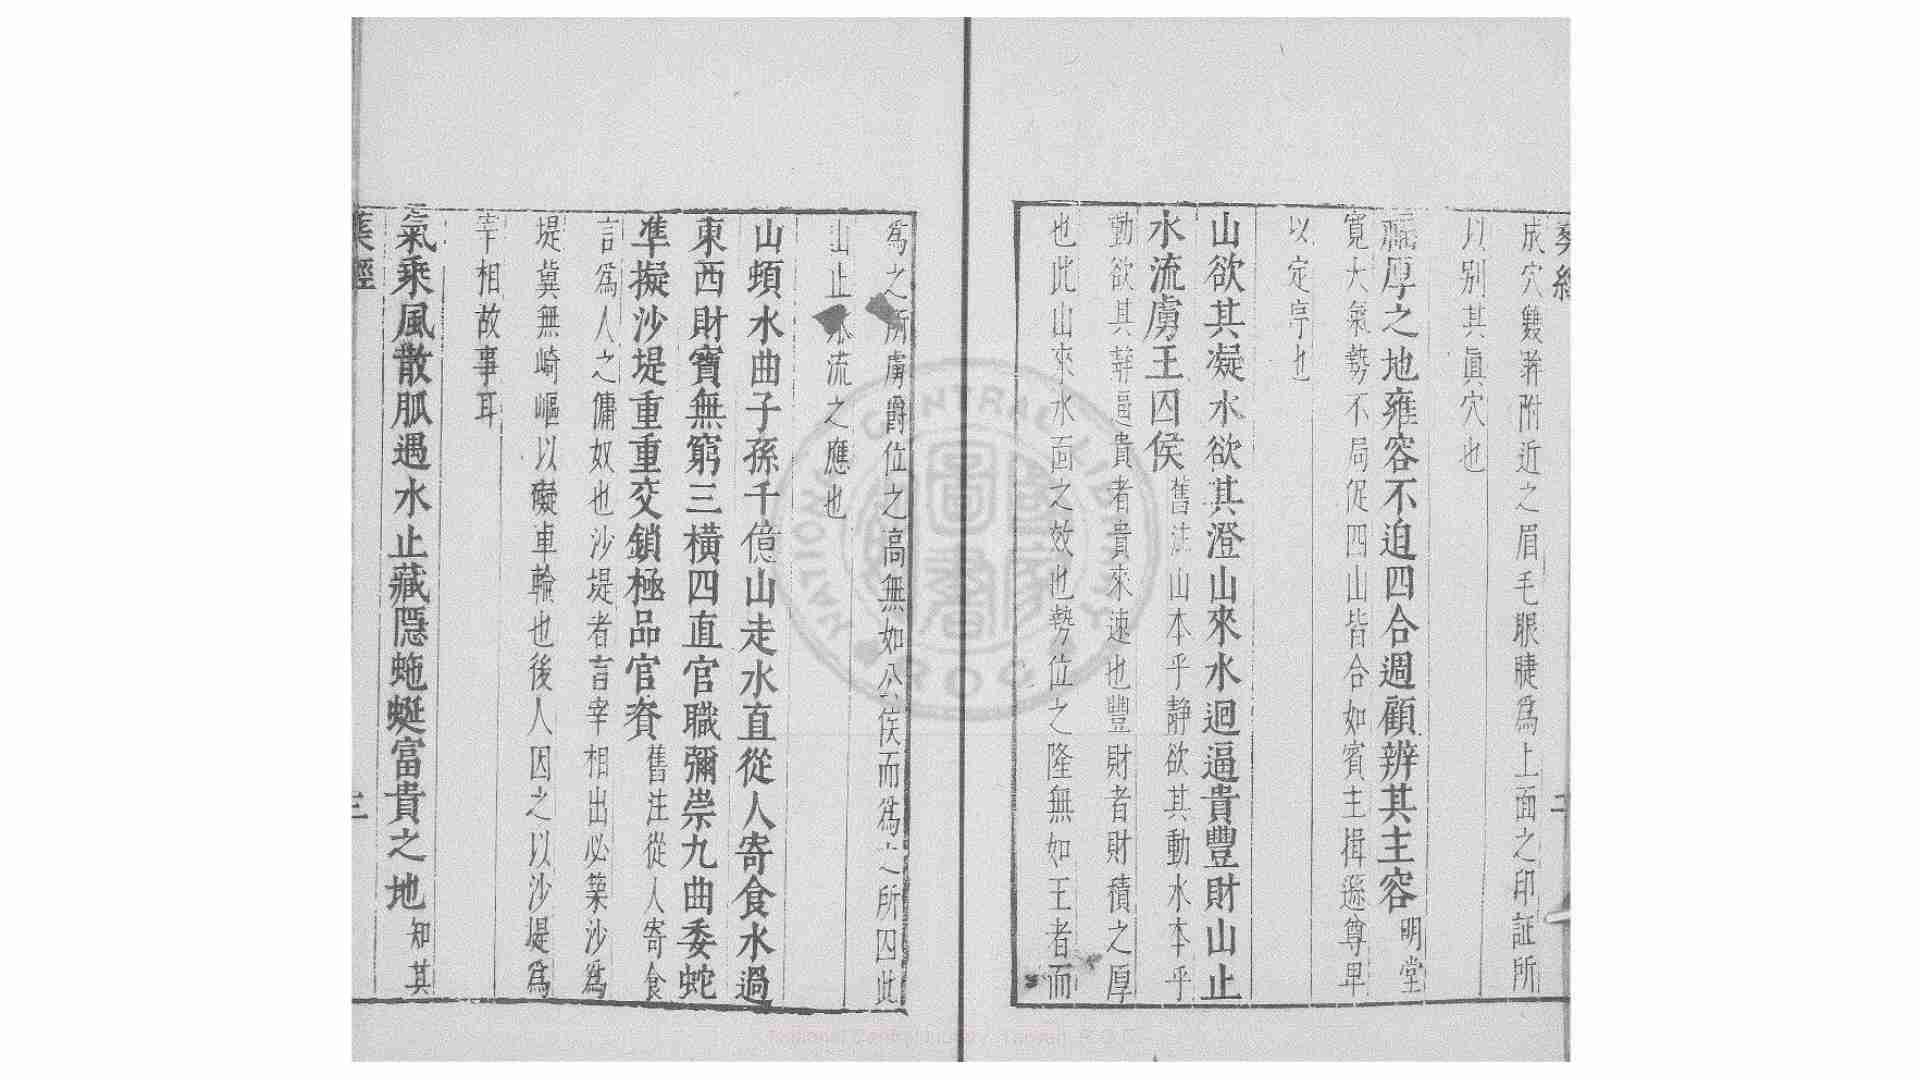 葬經
二
成穴雙葬附近之眉毛眼睫為上面之印証所
以别其眞穴也
厚之地雍容不迫四合週顧辨其主客明堂
寬大氣勢不局促四山皆合如賓主揖遜尊卑
以定序也
山欲其凝水欲其澄山來水迴逼貴豐財山止
水流虜王囚侯舊注山本乎靜欲其動水本乎
動欲其靜逼貴者貴來速也豐財者財積之厚
也此山來水囬之效也勢位之隆無如王者而
為之所虜爵位之高無如公侯而為之所囚此
山止水流之應也
山頓水曲子孫千億山走水直從人寄食水過
東西財寶無窮三橫四直官職彌崇九曲委蛇
準擬沙堤重重交鎖極品官資舊注從人寄食
言為人之傭奴也沙堤者言宰相出必築沙為
堤冀無崎嶇以礙車輪也後人因之以沙堤為
宰相故事耳
氣乘風散脈遇水止藏隱蜿蜒富貴之地知其
葬經
三
NATIONAL CENTRAL LIBRARY
R.O.C.
國家圖書館